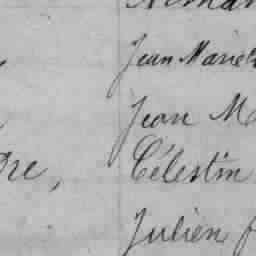 Jean Marie
Jean M
dre, Célestin
Julien f